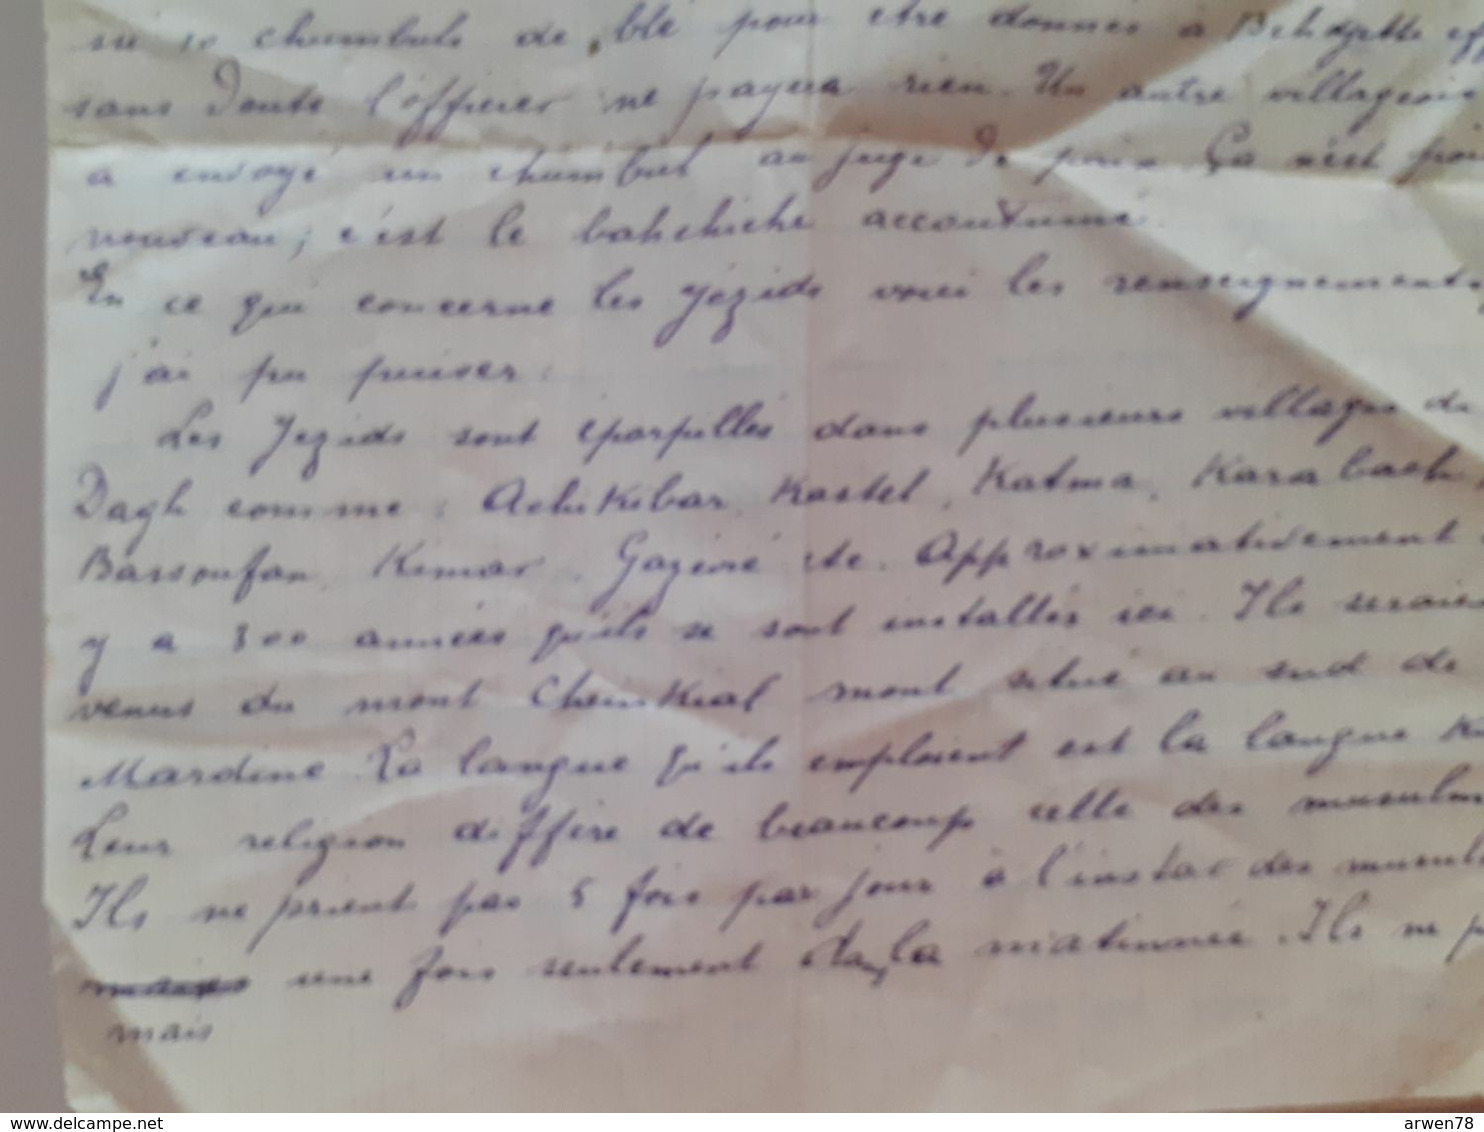 10 chumbuls de blé pour être donnés à Behdjette eff
sans doute l'officier ne payera rien. Un autre villageois
a envoyé un chumbul au juge de paix. Ça n'est poi
nouveau; c'est le bahchiche accoutumé.
En ce qui concerne les Yézids voici les renseignements
j'ai pu puiser:
Les Jezids sont éparpillés dans plusieurs villages du
Dagh comme: Achikibar, Kastel, Katma, Karabach,
Bassoufan, Kimar, Gazivié etc. Approximativement
y a 800 années qu'ils se sont installés ici. Ils seraien
venus du mont mont situé au sud de
Mardine. La langue qu'ils emploient est la langue Ku
Leur religion diffère de beaucoup celle des musulm
Ils ne prient pas 5 fois par jour à l'instar des musul
une fois seulement dans la matinnée. Ils ne p
mais
www.delcampe.net
arwen78